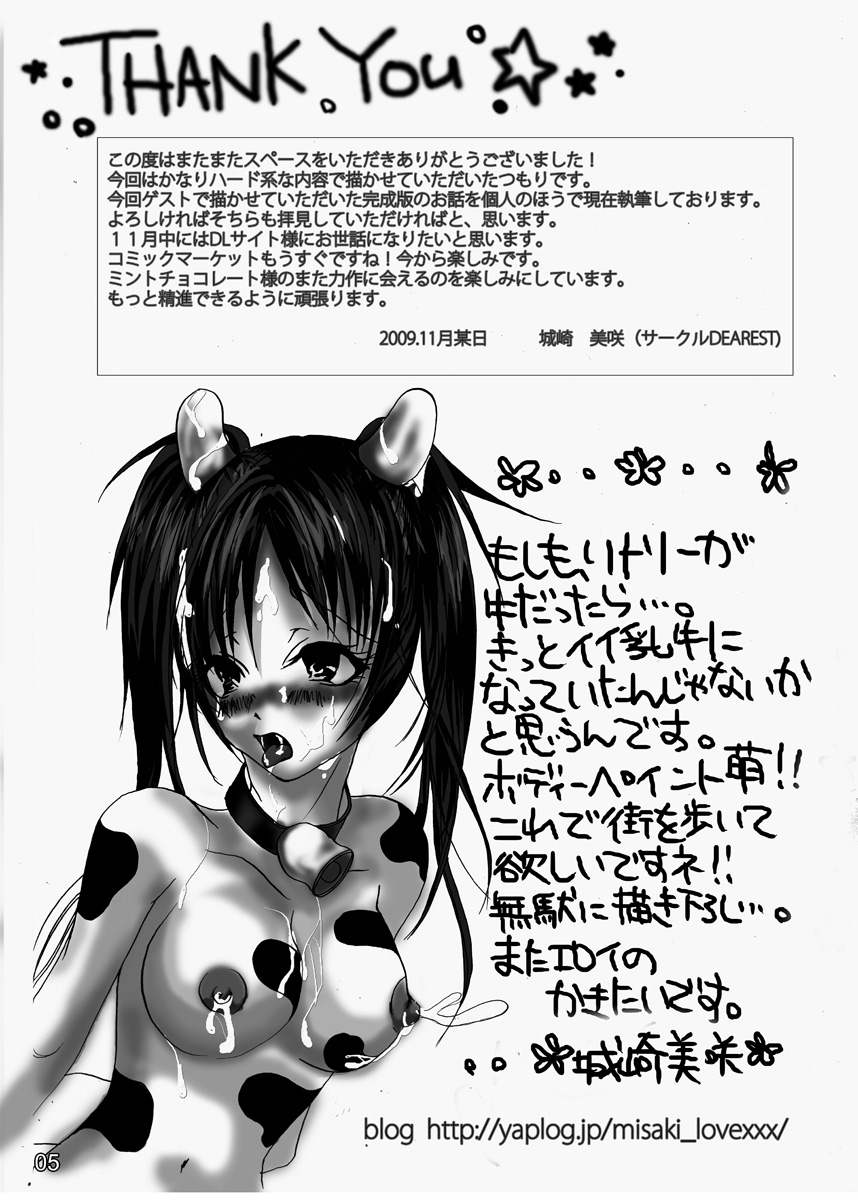 THANK YOU
この度はまたまたスペースをいただきありがとうございました！
今回はかなりハード系な内容で描かせていただいたつもりです。
今回ゲストで描かせていただいた完成版のお話を個人のほうで現在執筆しております。
よろしければそちらも拝見していただければと、思います。
１１月中にはDLサイト様にお世話になりたいと思います。
コミックマーケットもうすぐですね！今から楽しみです。
ミントチョコレート様のまた力作に会えるのを楽しみにしています。
もっと精進できるように頑張ります。
2009.11月某日 城崎　美咲（サークルDEAREST)
もしも、リトリーが
牛だったら…。
きっとイイ乳牛に
なっていたんじゃないか
と思うんです。
ボディーペイント萌!!
これで街を歩いて
欲しいですネ!!
無駄に描き下ろし…。
またエロイの
かきたいです。
城崎美咲
blog http://yaplog.jp/misaki_lovexxx/
05